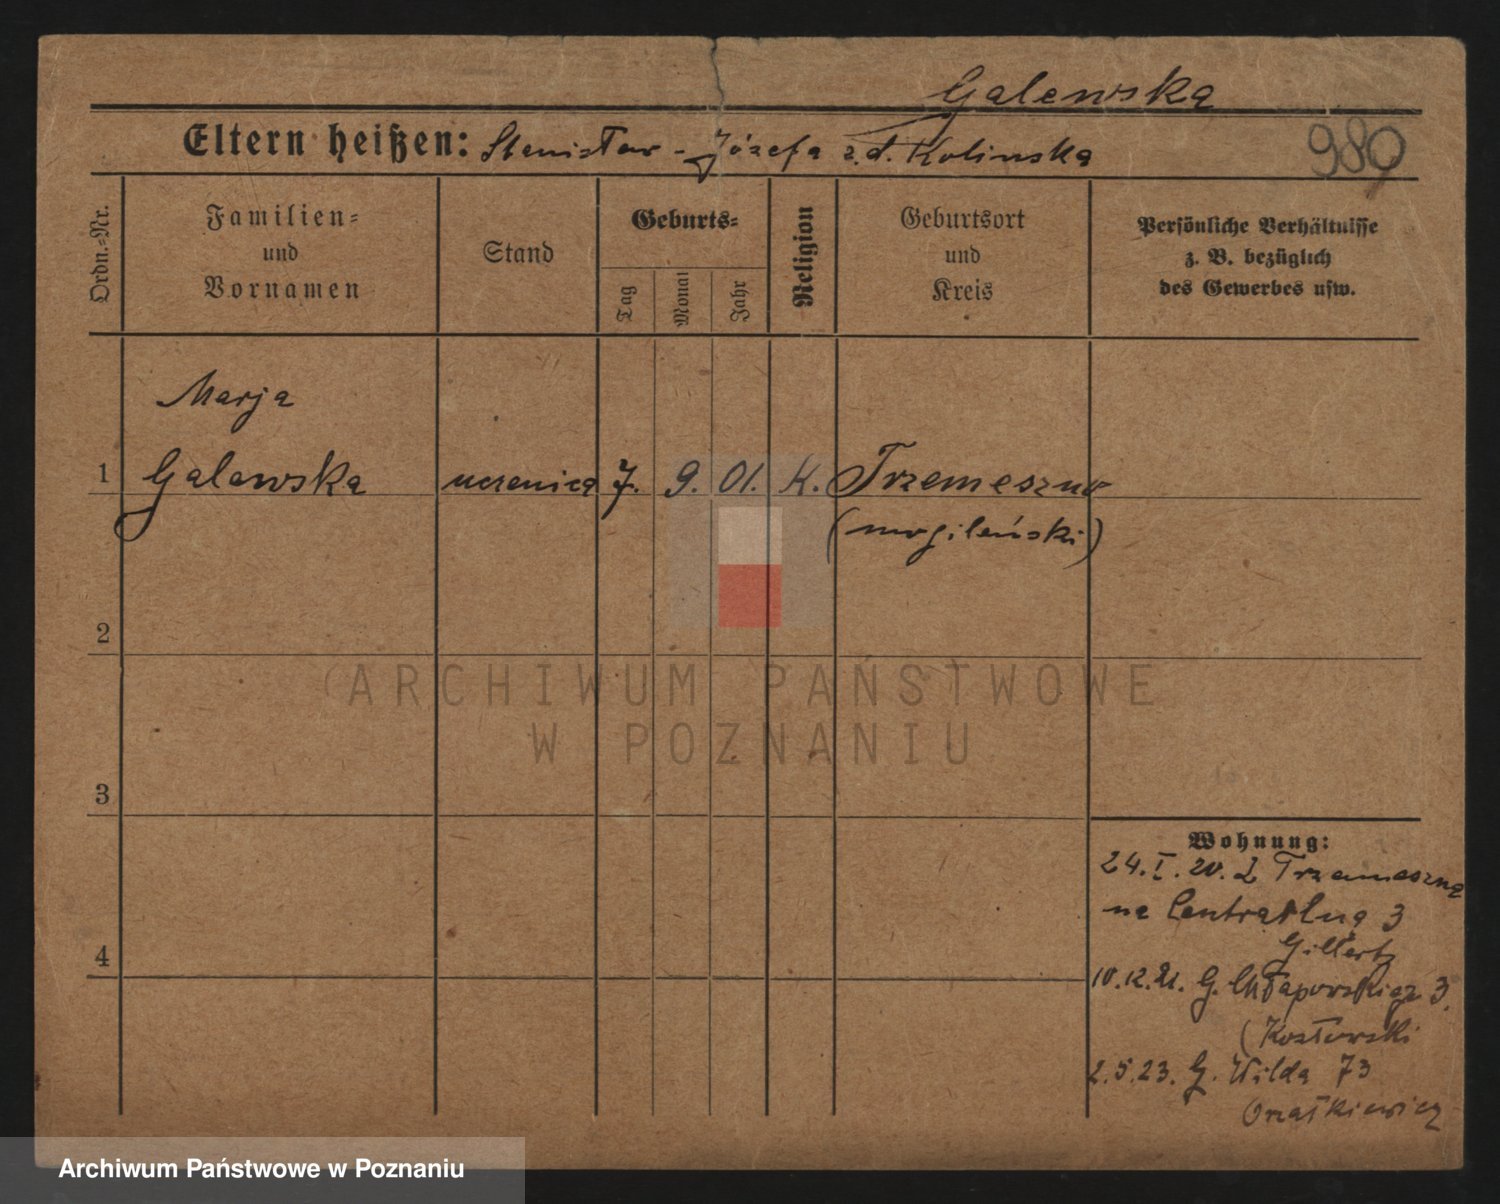 Galewska
Eltern heißen: Stanisław - Józefa z.d. Kolinska
980
Ordn.-Nr.
Familien-
und
Vornamen
Stand
Geburts-
Tag
Monat
Jahr
Religion
Geburtsort
und
Kreis
Persönliche Verhältnisse
z. B. bezüglich
des Gewerbes usw.
Marja
1 Galewska uczenica 7. 9. 01. K. Trzemeszno
(mogileński)
2
3
4
Wohnung:
24.I.20. Z Trzemeszna
na Centralna 3
10.12.21. G. Chłapowskiego 3.
2.5.23. G. Wilda 73
ARCHIWUM PAŃSTWOWE
W POZNANIU
Archiwum Państwowe w Poznaniu